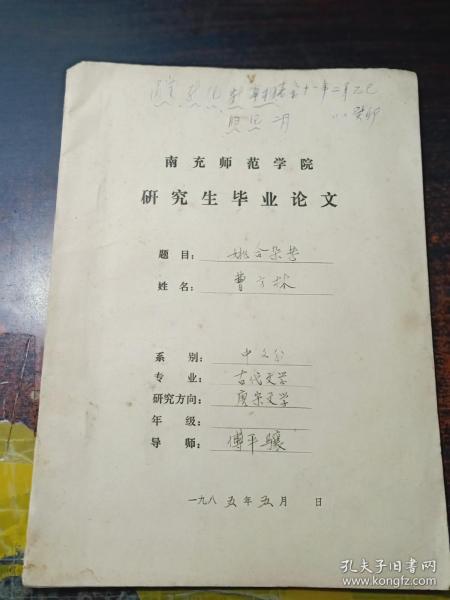 十一年二年乙巳
癸卯
二月
南充师范学院
研究生毕业论文
题目：姚合杂考
姓名：曹方林
系别：中文系
专业：古代文学
研究方向：唐宋文学
年级：
导师：傅平骧
一九八五年五月 日
孔夫子旧书网
www.kongfz.com